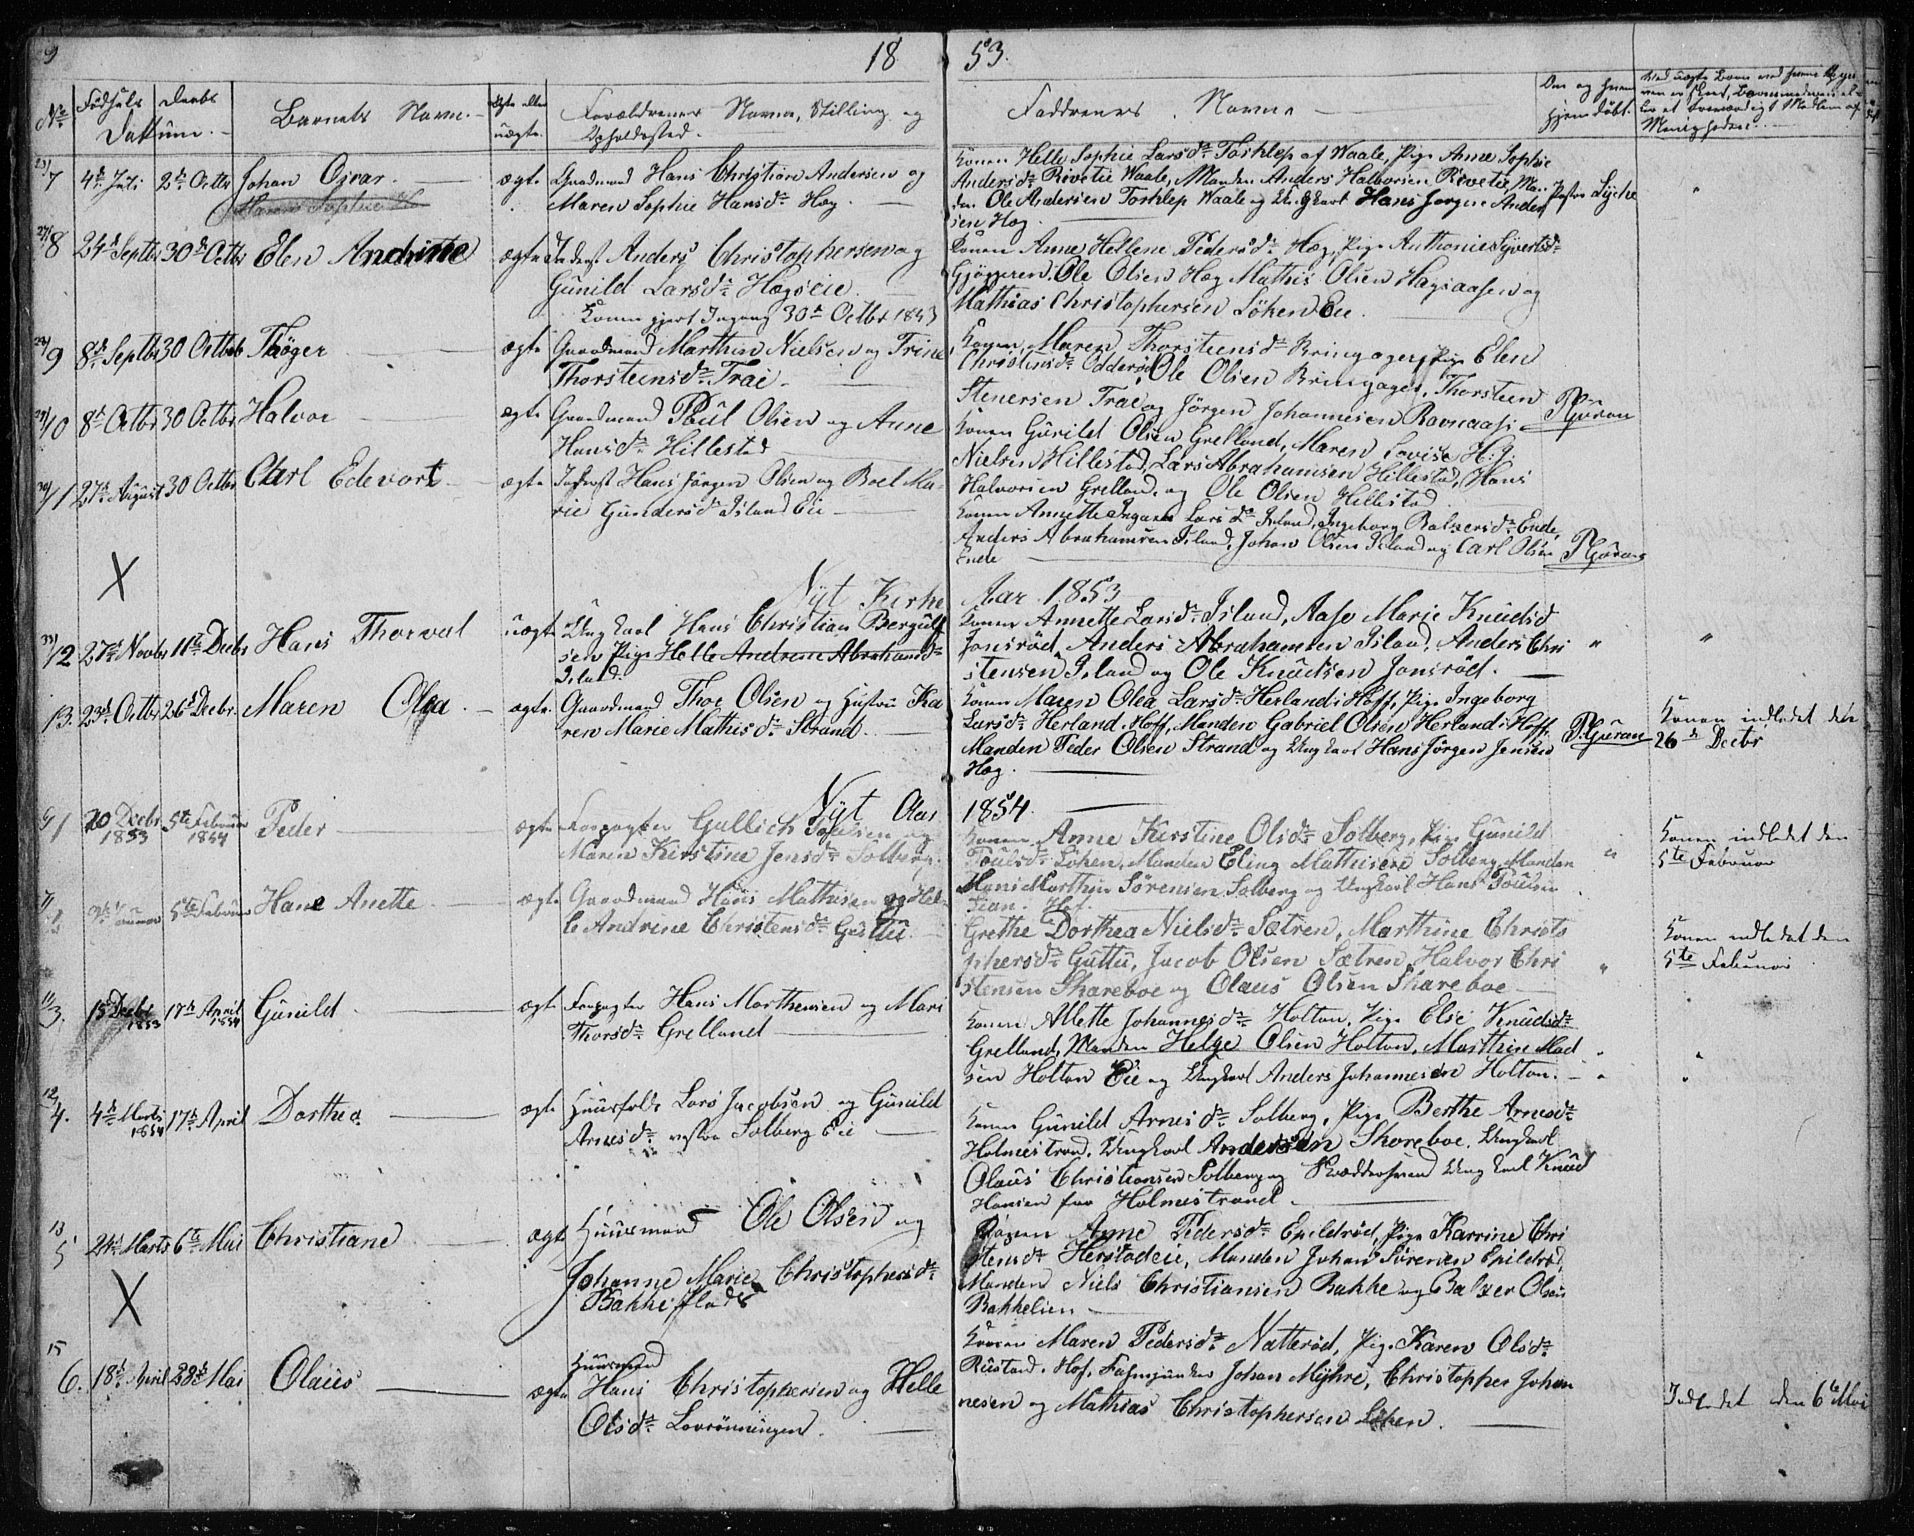 9
18
53.
No
Fødsels
Daabs
Datum.
Barnets Navn.
Ægte eller
uægte.
Forældrenes Navne, Stilling og
Opholdssted.
Faddrenes Navne
hjemdøbt.
23/7 4de Juli 2den Octbr Johan Ozvar ægte Gaardmand Hans Christian Andersen og
Maren Sophie Hansdr Hæg.
Konen Helle Sophie Larsdr Torklep af Waale, Pige Anne Sophie
Andersdr Rivetie Waale, Manden Anders Halvorsen Rivetie, Man
den Ole Andersen Torklep Waale og Ungkarl Hans Jørgen Ander
sen Hæg.
Pastor Lyche
27/8 24de Septbr 30de Octbr Elen Andrine ægte Inderst Anders Christophersen og
Gunild Larsdr Hægseie.
Konen gjort Ingang 30de Octbr 1853
Konen Anne Hellene Pedersdr Hæg, Pige Anthonie Syvertsdr
Gjøgeren, Ole Olsen Hæg Mathis Olsen Hægsaasen og
Mathias Christophersen Løken Eie.
9 8de Septbr 30 Octbr Thøger ægte Gaardmand Marthin Nielsen og Trine
Thorsteensdr Trae.
Konen Maren Thorsteensdr Bringager, Pige Elen
Christensdr Odderød, Ole Olsen Bringager, Thorsteen
Stenersen Trae og Jørgen Johannesen Ravnaas
29/10 8de Octbr 30 Octbr Halvor ægte Gaardmand Poul Olsen og Anne
Hansdr Hillestad
Konen Gunild Olsen Grelland, Maren Lovise H. J.
Nielsen Hillestad, Lars Abrahamsen Hillestad, Hans
Halvorsen Grelland, og Ole Olsen Hillestad.
P. Guran
30/11 27de August 30 Octbr Carl Edevart ægte Inderst Hans Jørgen Olsen og Boel Ma-
rie Gundersdr Island Eie
Konen Annette Ingara Larsdr Island, Ingeborg Balzersdr Ende,
Anders Abrahamsen Island, Johan Olsen Island og Carl Olsen
Ende
P. Guran
X
Nyt Kirke
Aar 1853
33/12 27de Novbr 11te Decbr Hans Thorval uægte Ungkarl Hans Christian Bergulf
sen Pige Helle Andrine Abrahamsdr
Island.
Konen Annette Larsdr Island, Aase Marie Knudsd
Jonsrød, Anders Abrahamsen Island, Anders Chri
stensen Island og Ole Knudsen Jonsrød.
13. 23de Octbr 26de Decbr Maren Olea ægte Gaardmand Thor Olsen og Hustru Ka
ren Marie Mathisdr Strand.
Konen Maren Olea Larsdr Herland i Hoff, Pige Ingeborg
Larsdr Herland Hoff, Manden Gabriel Olsen Herland i Hoff,
Manden Peder Olsen Strand og Ungkarl Hans Jørgen Jensen
Hæg.
P. Guran
Konen indledet den
26de Decbr
Nyt Aar
1854.
1 20 Decbr 1853 5te Februar 1854 Peder ægte Forpagter Gullich Poulsen og
Maren Kirstine Jensdr Solberg.
Konen Anne Kirstine Olsdr Solberg, Pige Gunild
Poulsdr Løken, Manden Eling Mathisen Solberg, Manden
Hans Marthin Sørensen Solberg og Ungkarl Hans Poulsen
Hof.
Konen indledet den
5te Februar
2 3de Januar 5te Februar Hane Anette ægte Gaardmand Hans Mathisen og Hel-
le Andrine Christensdr Guttu.
Grethe Dorthea Nielsdr Sætren, Marthine Christo
phersdr Guttu, Jacob Olsen Sætren, Halvor Chri
stensen Skareboe og Olaus Olsen Skareboe
Konen indledet den
5te Februar
11/3. 15 Decbr 1853 17de April 1854 Gunild ægte Forpagter Hans Marthensen og Mari
Thorsdr Grelland
Konen Allette Johannesdr Holtan, Pige Elie Knudsdr
Grelland, Manden Helge Olsen Holtan, Marthin Mad
sen Holtan Eie og Ungkarl Anders Johannesen Holtan.
12/4. 4de Marts 1854 17de April Dorthea ægte Huusfolk Lars Jacobsen og Gunild
Arnesdr vestre Solberg Eie
Konen Gunild Arnesdr Solberg, Pige Berthe Arnesdr
Holmestrand, Ungkarl Andersen Skareboe, Ungkarl
Olaus Christiansen Solberg og Skræddersvend Ungkarl Knud
Hansen fra Holmestrand.
13/5 24de Marts 6te Mai Christiane ægte Huusmand Ole Olsen og
Johanne Marie Christophersdr
Bakkeflade
Konen Anne Pedersdr Epildrød, Pige Karrine Chri
stensdr Herstadeie, Manden Johan Sørensen Epildrød,
Manden Niels Christiansen Bakke og Balzer Olsen
Bakkelien
X
15
6. 18de April 28de Mai Olaus ægte Huusmand
Hans Christophersen og Helle
Olsdr Lovrønningen.
Konen Maren Pedersdr Natterød, Pige Karen Olsdr
Rustand, Hof, Fahnjunker Johan Myhre, Christopher Johan
nesen og Mathias Christophersen Løken.
Indledet den 6te Mai